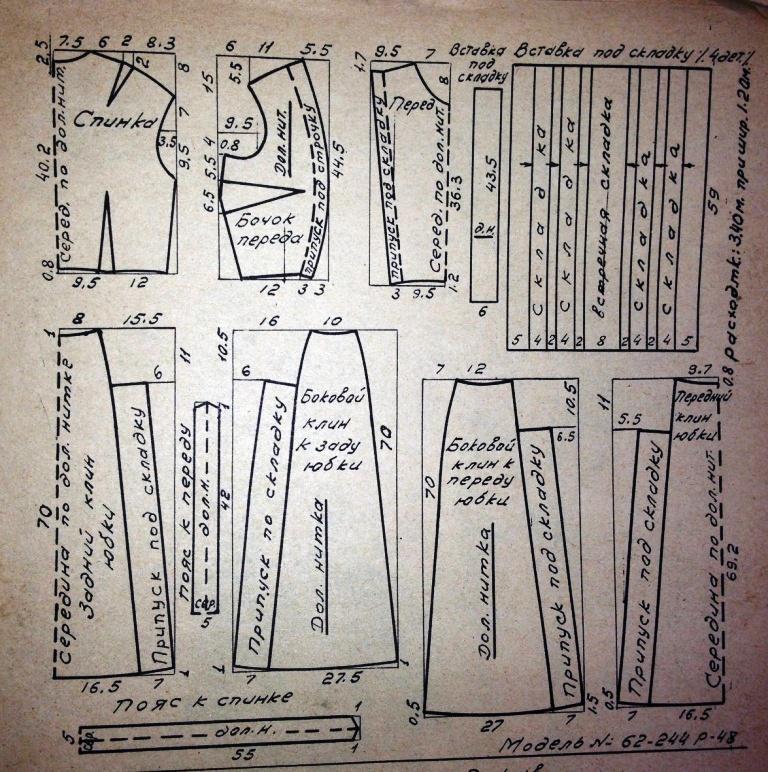 7.5 6 2 8.3
2.5
2
8
Спинка
7
3.5
9.5
40.2
Серед. по дол. нит.
0.8
9.5 12
6 11 5.5
15
5.5
9.5
4
0.8
5.5
6.5
Дол. нит.
припуск под строчку
44.5
Бочок
переда
12 3 3
9.5 7
1.7
8
Перед
припуск под складку
Серед. по дол. нит.
36.3
1.2
3 9.5
Вставка
под
складку
43.5
д.н.
6
Вставка под складку /4 дет/
складка
складка
встречная складка
складка
складка
59
5 4 2 4 2 8 2 4 2 4 5
0.8 Расход тк: 3.40м. при шир. 1.20м.
8 15.5
1
11
6
70
Середина по дол. нитке
Задний клин
юбки
Припуск под складку
16.5 7 1
Пояс к переду
1
дол.н.
42
сер.
5
16 10
10.5
6
Боковой
клин
к заду
юбки
70
Припуск по складку
Дол. нитка
1 7 27.5 1
7 12
10.5
6.5
Боковой
клин к
переду
юбки
70
Дол. нитка
Припуск под складку
0.5 27 7 1.5
9.7
11
5.5
Передний
клин
юбки
Припуск под складку
Середина по дол. нит.
69.2
0.5 7 16.5
Пояс к спинке
5
сер.
дол.н.
1
1
55
Модель №: 62-244 Р-48